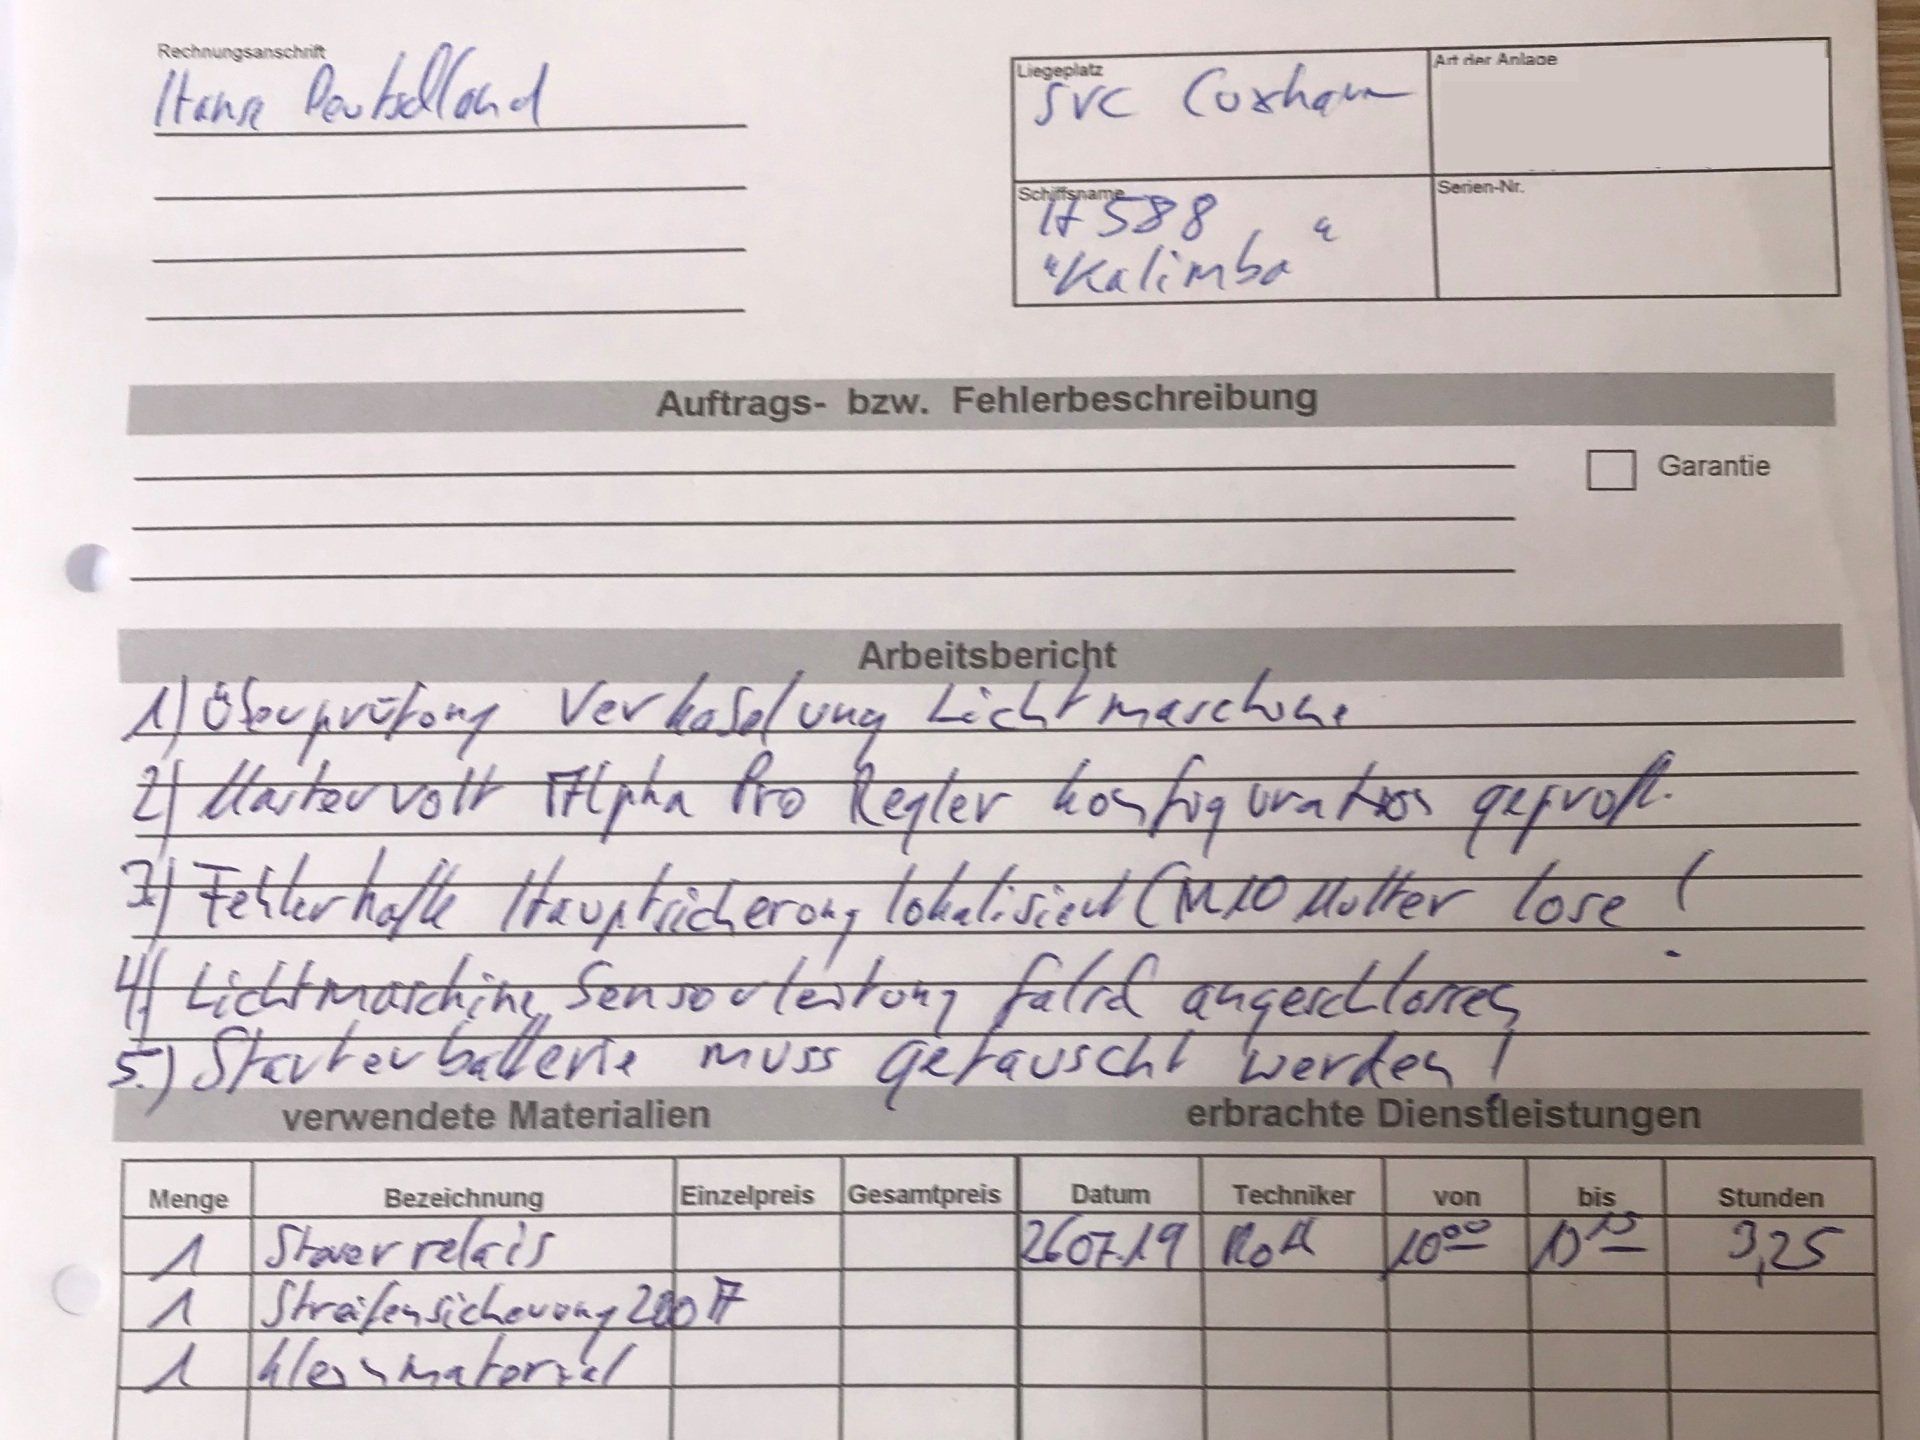 Rechnungsanschrift
Hanse Deutschland
Liegeplatz
SVC Cuxhaven
Art der Anlage
Schiffsname
H 588
"Kalimba"
Serien-Nr.
Auftrags- bzw. Fehlerbeschreibung
Garantie
Arbeitsbericht
1) Überprüfung Verkabelung Lichtmaschine
2) Mastervolt Alpha Pro Regler Konfiguration geprüft.
3.) Fehlerhafte Hauptsicherung lokalisiert (M10 Mutter lose !
4) Lichtmaschine Sensorleitung falsch angeschlossen
5.) Starterbatterie muss getauscht werden!
verwendete Materialien
erbrachte Dienstleistungen
Menge Bezeichnung Einzelpreis Gesamtpreis Datum Techniker von bis Stunden
1 Steuerrelais 26.07.19 10⁰⁰ 13¹⁵ 3,25
1 Streifensicherung 200 A
1 Kleinmaterial